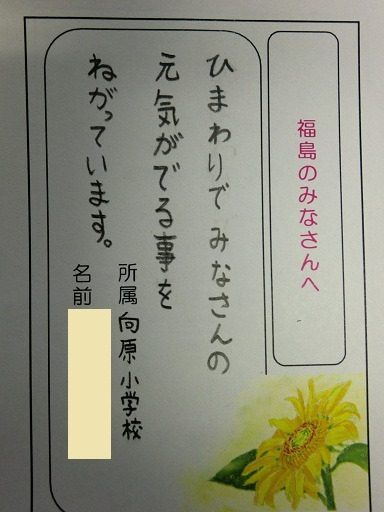 福島のみなさんへ
ひまわりでみなさんの
元気がでる事を
ねがっています。
所属 向原小学校
名前